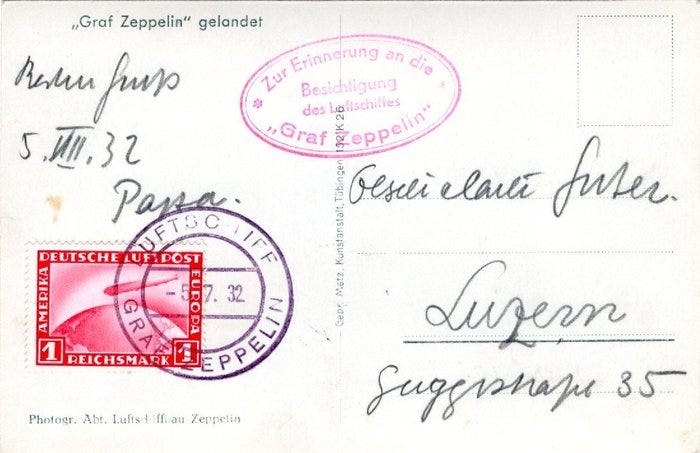 „Graf Zeppelin" gelandet
Besten Gruß
5. VII. 32
Papa.
Zur Erinnerung an die
Besichtigung
des Luftschiffes
„Graf Zeppelin"
Gebr. Metz, Kunstanstalt, Tübingen 132 K 26
Luzern
Guggistraße 35
LUFTSCHIFF
- 5. 7. 32
GRAF ZEPPELIN
DEUTSCHE LUFTPOST
AMERIKA
EUROPA
1 REICHSMARK 1
Photogr. Abt. Luftschiffbau Zeppelin